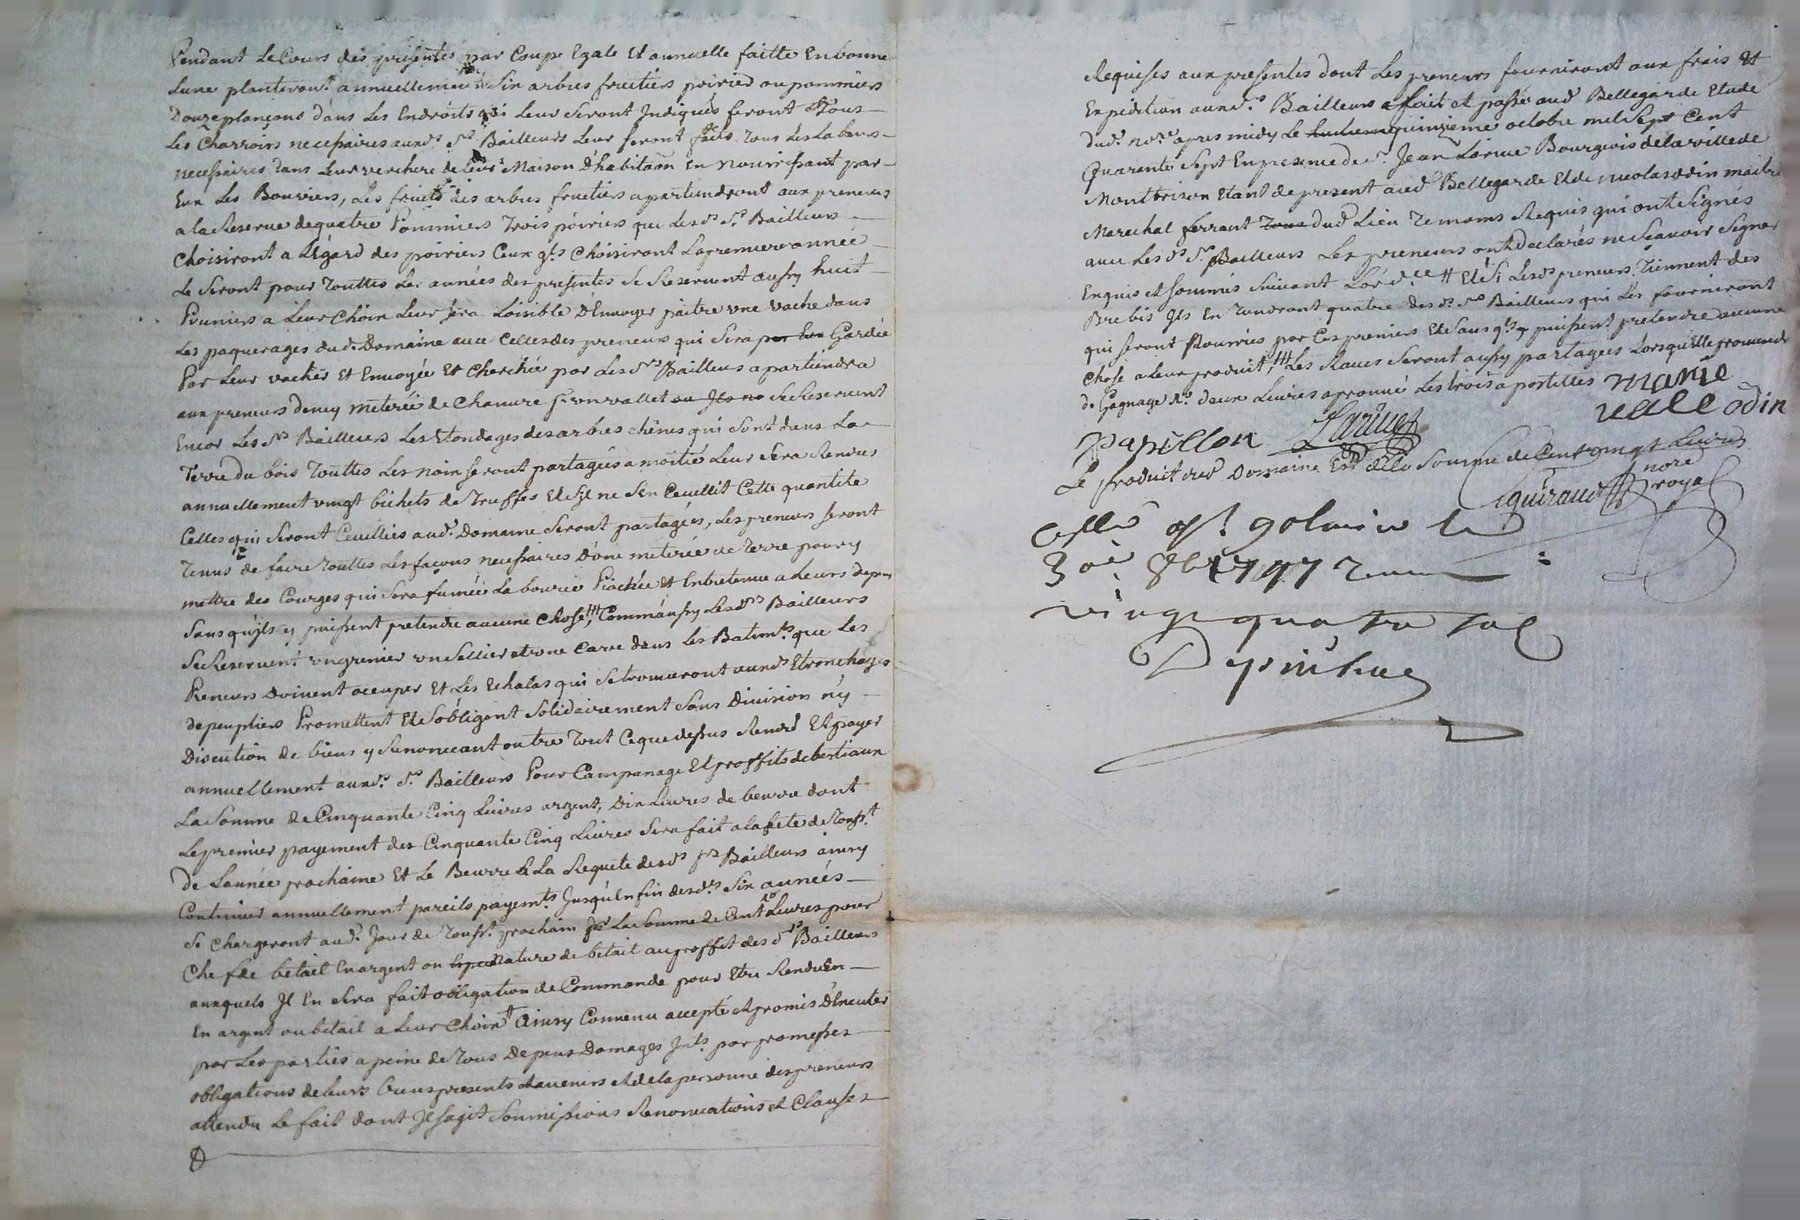 Pendant Le Cours des presentes par Coupe Egale Et annuelle faitte En bonne
Lune planteront annuellement Six arbres fruitiers poirier ou pommiers
Douze plançons dans Les Endroits qui Leur Seront Indiqués feront Tous
Les Charrois necessaires auxd. Srs Bailleurs Leur feront faits Tous Les Labours
necessaires dans Leur verchere de Leur Maison D'habitaon En nourrissant par
Eux Les Bouviers, Les fruits des arbres fruitiers apartiendront aux preneurs
a la Reserve de quatre Pommiers Trois poiriers que Lesds Srs Bailleurs
Choisiront a L'égard des poiriers Ceux qls Choisiront La premiere année
Le Seront pour Touttes Les années des presentes Se Reservent aussy huit
Pruniers a Leur Choix Leur sera Loisible D'Envoyer paitre une vache dans
Les paquerages dud. Domaine avec Celles des preneurs qui Sera par Eux Gardée
Par Leur vacher Et Envoyée Et Cherchée par Lesd Srs Bailleurs apartiendra
aux preneurs demy meterée de Chanvre Si un vallet ou Ils no Se Reservent
Encor Les Srs Bailleurs Les Etondages des arbres chênes qui Sont dans La
Terre du bois Touttes Les noix Seront partagées a moitié Leur Sera Rendus
annuellement vingt bichets de Truffes Et S'il ne S'en Ceuillit Cette quantité
Celles qui Seront Ceuillies aud. Domaine Seront partagées, Les preneurs Seront
Tenus de faire Touttes Les façons necessaires D'une meterée de Terre pour y
mettre des Courges qui Sera fumée Labourée Piochée Et Entretenue a Leurs depens
Sans qu'ils y puissent pretendre aucune Chose ttt Comm'aussy Lesds Bailleurs
Se Reservent un grenier un Sellier et une Cave dans Les Batimts que Les
Preneurs Doivent occuper Et Les Echalas qui Se trouveront auxds Etronchages
de peupliers Promettent Et S'obligent Solidairement Sans Division n'y
Discution de biens y Renonceant outre Tout Ce que dessus Rendre Et payer
annuellement auxd. Srs Bailleurs Pour Campanage Et proffits de bestiaux
La Somme de Cinquante Cinq Livres argent, Dix Livres de beurre dont
Le premier payement des Cinquante Cinq Livres Sera fait a la fete de Toust
de L'année prochaine Et Le Beurre a La Requete desds Srs Bailleurs ainsy
Continuer annuellement pareils payemts Jusqu'En fin desds Six années
Se Chargeront aud. Jour de Toust prochain de La Somme de Cent Livres pour
Chef de betail En argent ou Nature de betail au proffit desd Srs Bailleurs
auxquels Il En Sera fait obligation de Commande pour Etre Rendu En
En argent ou betail a Leur Choix t Ainsy Convenu accepté et promis D'Executer
par Les parties a peine de Tous Depens Domages Ints par promesses
obligations de Leurs biens presents et avenirs et de la personne des preneurs
attendu Le fait dont Il S'agit Soumissions Renonciations et Clauses
Requises aux presentes dont Les preneurs fourniront aux frais Et
Expedition auxds Bailleurs a fait et passé aud Bellegarde Etude
dud. nore apres midy Le quinzieme octobre mil Sept Cent
Quarante Sept En presence de Sr Jean Larue Bourgeois de la ville de
Montbrison Etant de present aud Bellegarde Et de nicolas odin maitre
Marechal ferrant dud Lieu Temoins Requis qui ont Signés
avec Lesds Srs Bailleurs Les preneurs ont declarés ne Sçavoir Signer
Enquis et Sommés Suivant L'ordce tt Et Si Lesds preneurs Tiennent des
Brebis Ils En Tiendront quatre desds Srs Bailleurs qui Les fourniront
qui Seront Nourries par Ces premiers Et Sans qls y puissent pretendre aucune
Chose a Leur produit, ttt Les Raves Seront aussy partagées Lorsqu'Elle
de Gagnage deux Livres aprouvé Les trois apostilles marie
Papillon Larue valle odin
Le produit dud Domaine Est de La Somme de Cent vingt Livres
Guiraud nore royal
le
30e 8bre 1747
vingt quatre sols